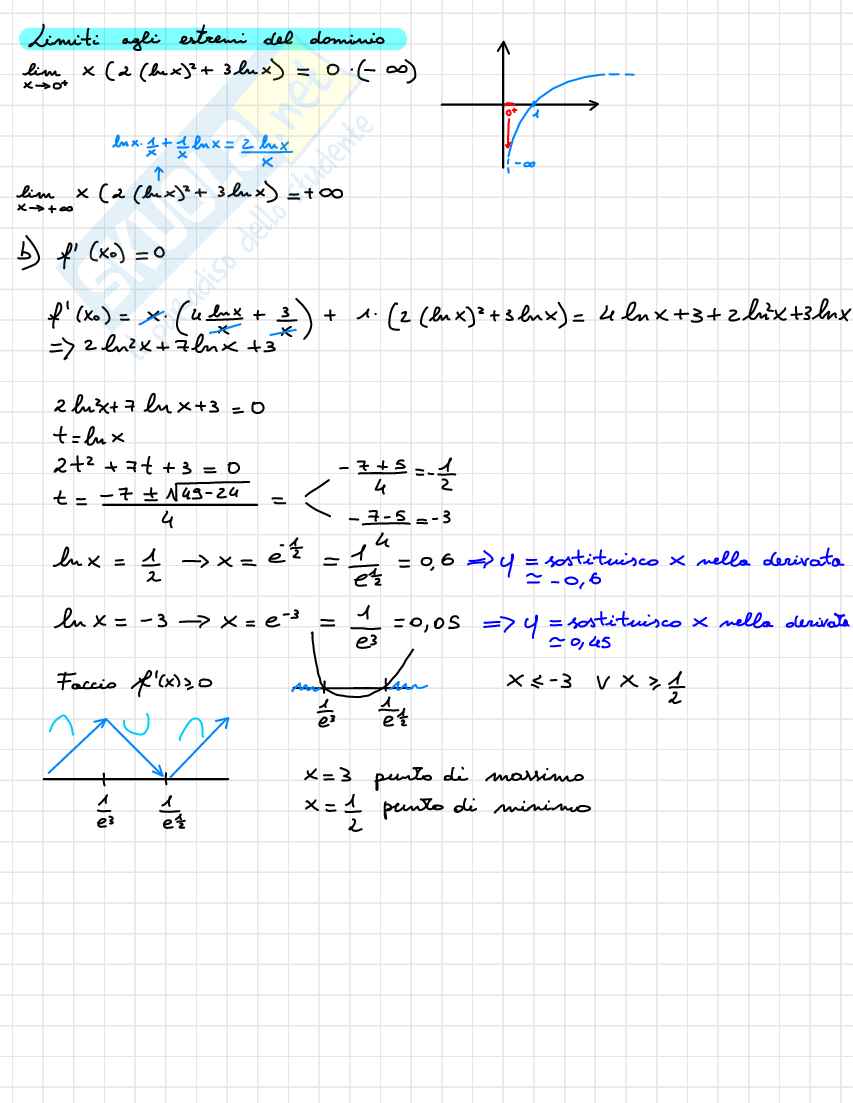 Limiti agli estremi del dominio
lim x→0⁺ x (2 (ln x)² + 3 ln x) = 0 · (- ∞)
0⁺ 1
-∞
ln x · 1/x + 1/x ln x = 2 ln x / x
lim x→+∞ x (2 (ln x)² + 3 ln x) = +∞
b) f' (x₀) = 0
f' (x₀) = x · (4 ln x / x + 3/x) + 1 · (2 (ln x)² + 3 ln x) = 4 ln x + 3 + 2 ln² x + 3 ln x
=> 2 ln² x + 7 ln x + 3
2 ln² x + 7 ln x + 3 = 0
t = ln x
2t² + 7t + 3 = 0
t = (-7 ± √49-24) / 4 =
(-7 + 5) / 4 = - 1/2
(-7 - 5) / 4 = -3
ln x = 1/2 → x = e^-1/2 = 1/e^1/2 = 0,6 => y = sostituisco x nella derivata
≃ -0,6
ln x = -3 → x = e⁻³ = 1/e³ = 0,05 => y = sostituisco x nella derivata
≃ 0,45
Faccio f'(x) ≥ 0
1/e³ 1/e^1/2
x ≤ -3 ∨ x ≥ 1/2
1/e³ 1/e^1/2
x = 3 punto di massimo
x = 1/2 punto di minimo
SKUOLA.net
il paradiso dello studente